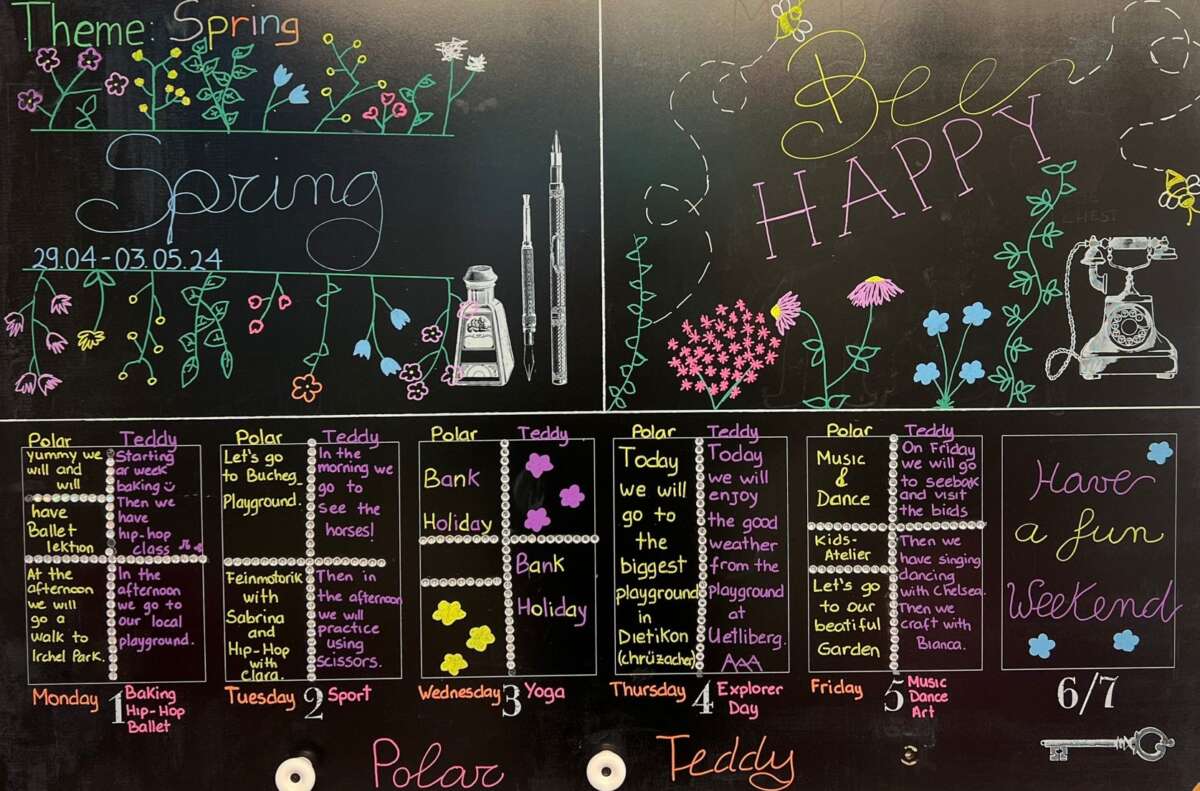 Theme: Spring
Spring
29.04-03.05.24
Bee
HAPPY
Polar
yummy we
will and
will
have
Ballet
lektion
At the
afternoon
we will
go a
walk to
Irchel Park.
Teddy
Starting
ar week
baking
Then we
have
hip-hop
class
In the
afternoon
we go to
our local
playground.
Monday
1
Baking
Hip-Hop
Ballet
Polar
Let's go
to Bucheg_
Playground.
Feinmotorik
with
Sabrina
and
Hip-Hop
with
Clara.
Teddy
In the
morning we
go to
see the
horses!
Then in
the afternoon
we will
practice
using
scissors.
Tuesday
2
Sport
Polar
Bank
Holiday
Teddy
Bank
Holiday
Wednesday
3
Yoga
Polar
Today
we will
go to
the
biggest
playground
in
Dietikon
(chrüzacher)
Teddy
Today
we will
enjoy
the good
weather
from the
playground
at
Uetliberg.
Thursday
4
Explorer
Day
Polar
Music
&
Dance
Kids-
Atelier
Let's go
to our
beatiful
Garden
Teddy
On Friday
we will go
to seebak
and visit
the birds
Then we
have singing
dancing
with Chelsea.
Then we
craft with
Bianca.
Friday
5
Music
Dance
Art
Have
a fun
Weekend
6/7
Polar
Teddy